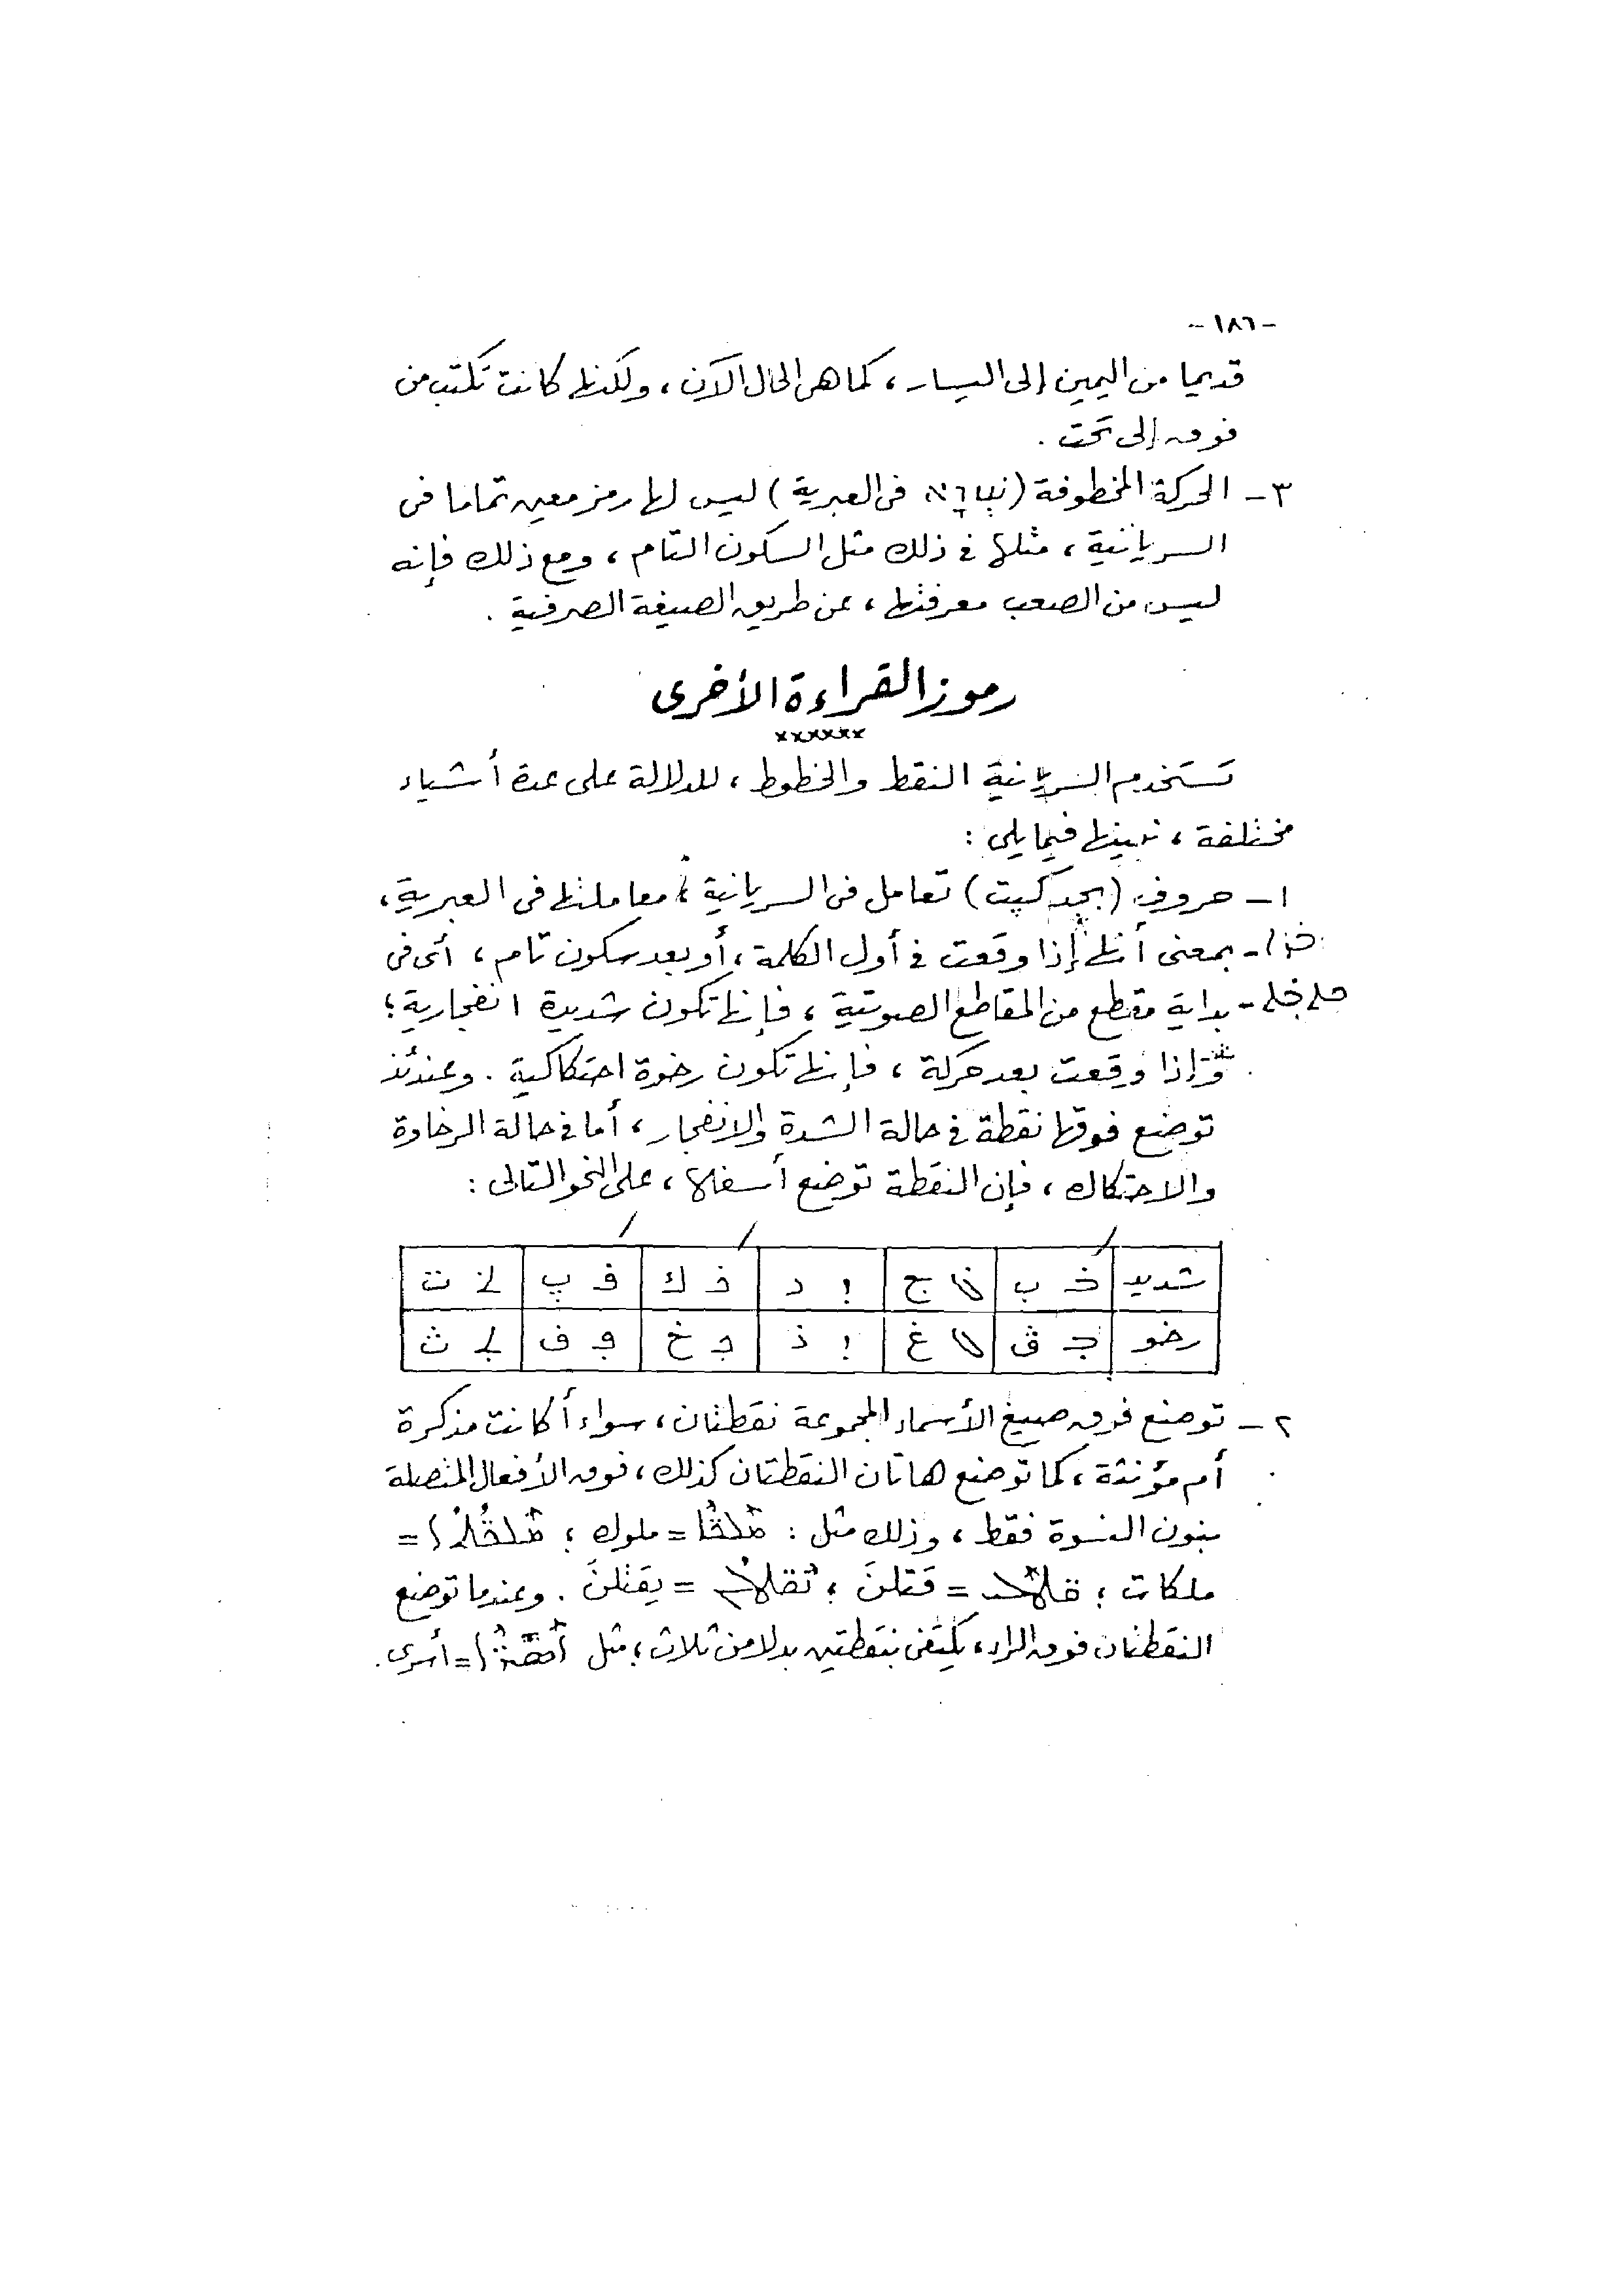 -١٨٦-
قديما من اليمين إلى اليسار ، كما هى الحال الآن ، ولكنها كانت تكتب من
فوق إلى تحت .
٣- الحركة المخطوفة ( فى العبرية ) ليس لها رمز معين تماما فى
السريانية ، مثلها فى ذلك مثل السكون التام ، ومع ذلك فإنه
ليس من الصعب معرفتها ، عن طريق الصيغة الصرفية .
رموز القراءة الأخرى
××××××
تستخدم السريانية النقط والخطوط ، للدلالة على عدة أشياء
مختلفة ، نبينها فيما يلى :
١- حروف ( بجد كپت ) تعامل فى السريانية ، معاملتها فى العبرية ،
بمعنى أنها إذا وقعت فى أول الكلمة ، أو بعد سكون تام ، أى فى
بداية مقطع من المقاطع الصوتية ، فإنها تكون شديدة انفجارية ؛
وإذا وقعت بعد حركة ، فإنها تكون رخوة احتكاكية . وعندئذ
توضع فوقها نقطة فى حالة الشدة والانفجار ، أما فى حالة الرخاوة
والاحتكاك ، فإن النقطة توضع أسفلها ، على النحو التالى :
شديد ب ج د ك پ ت
رخو ڤ غ ذ خ ف ث
٢- توضع فوق صيغ الأسماء المجموعة نقطتان ، سواء أكانت مذكرة
أم مؤنثة ، كما توضع هاتان النقطتان كذلك ، فوق الأفعال المتصلة
بنون النسوة فقط ، وذلك مثل : = ملوك ؛ =
ملكات ؛ = قَتلنَ ؛ = يَقتلنَ . وعندما توضع
النقطتان فوق الراء ، يكتفى بنقطتين بدلا من ثلاث ، مثل = أسرى .